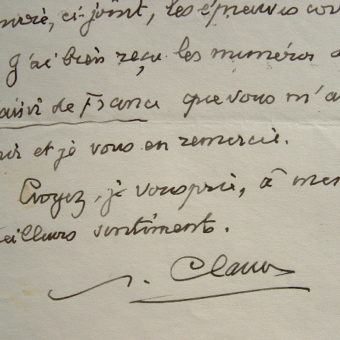 ci-joint, les épreuves cor
J'ai bien reçu les numéros d
de France que vous m'a
et je vous en remercie.
Croyez, je vous prie, à mes
eilleurs sentiments.